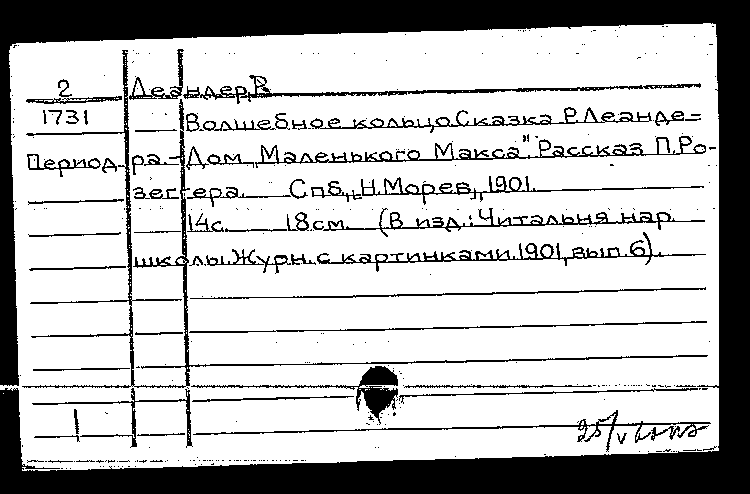 2 Леандер, Р.
1731 Волшебное кольцо. Сказка Р. Леанде=
Период. ра. - Дом „Маленького Макса". Рассказ П. Ро-
зеггера. Спб., „Н. Морев", 1901.
14 с. 18 см. (В изд.: Читальня нар.
школы. Журн. с картинками. 1901, вып. 6).
1
25/V